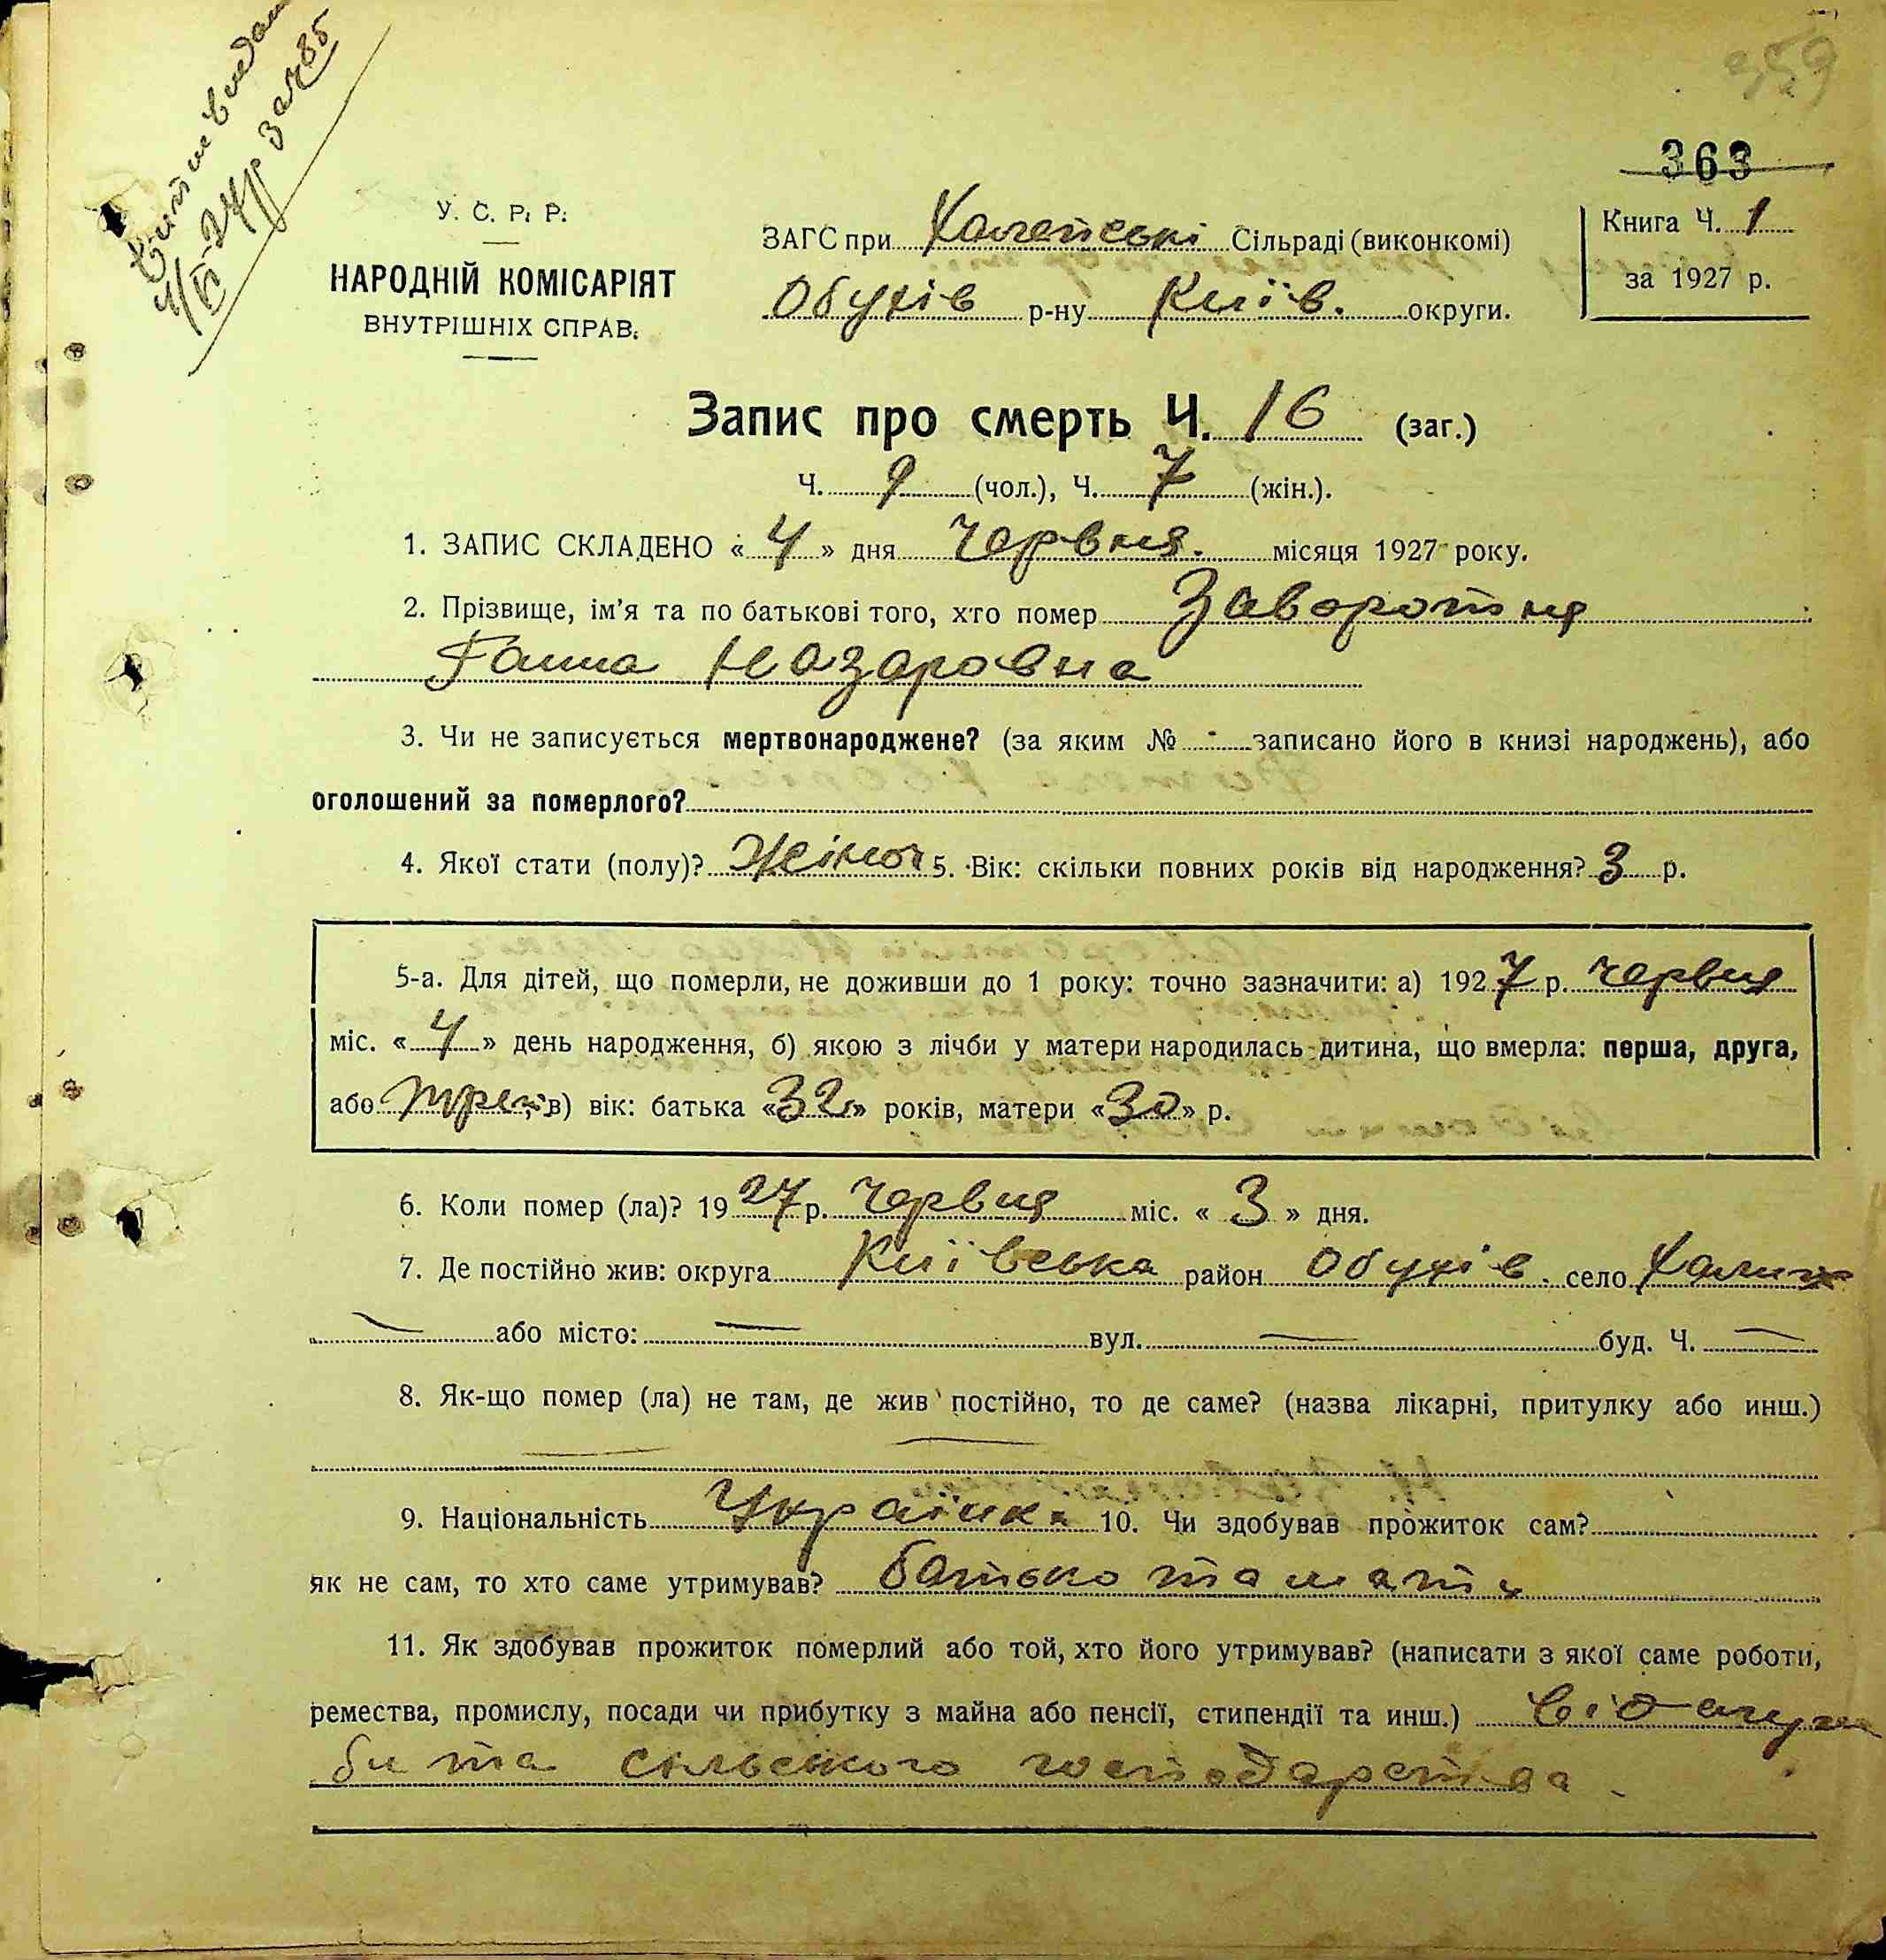 359
363
Витяг видан
4/VI-27 р. За ч 85
У. С. Р. Р.
НАРОДНІЙ КОМІСАРІЯТ
ВНУТРІШНІХ СПРАВ.
ЗАГС при Халепські Сільраді (виконкомі)
Обухів р-ну Київ. округи.
Книга Ч. 1
за 1927 р.
Запис про смерть Ч. 16 (заг.)
Ч. 9 (чол.), Ч. 7 (жін.).
1. ЗАПИС СКЛАДЕНО « 4 » дня Червня. місяця 1927 року.
2. Прізвище, ім'я та по батькові того, хто помер Заворотня
Ганна Назаровна
3. Чи не записується мертвонароджене? (за яким № - записано його в книзі народжень), або
оголошений за померлого?
4. Якої стати (полу)? Жіноч 5. Вік: скільки повних років від народження? 3 р.
5-а. Для дітей, що померли, не доживши до 1 року: точно зазначити: а) 1927 р. червня
міс. « 4 » день народження, б) якою з лічби у матери народилась дитина, що вмерла: перша, друга,
або в) вік: батька «32» років, матери «30» р.
6. Коли помер (ла)? 1927 р. червня міс. « 3 » дня.
7. Де постійно жив: округа Київська район Обухів. село
— або місто: — вул. — буд. Ч. —
8. Як-що помер (ла) не там, де жив постійно, то де саме? (назва лікарні, притулку або инш.)
— —
9. Національність Українка 10. Чи здобував прожиток сам?
як не сам, то хто саме утримував? батько та мати
11. Як здобував прожиток померлий або той, хто його утримував? (написати з якої саме роботи,
ремества, промислу, посади чи прибутку з майна або пенсії, стипендії та инш.) від
би та сільського господарства.